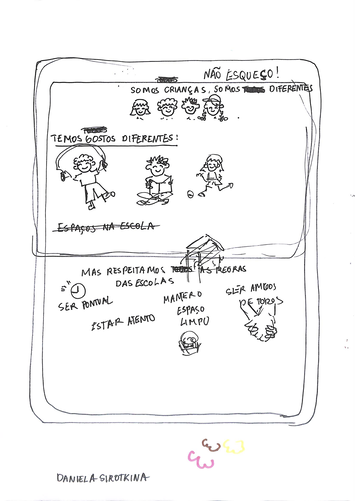 NÃO ESQUEÇO!
SOMOS CRIANÇAS, SOMOS DIFERENTES
TEMOS GOSTOS DIFERENTES:
ESPAÇOS NA ESCOLA
MAS RESPEITAMOS AS REGRAS
DAS ESCOLAS
SER PONTUAL
ESTAR ATENTO
MANTER O
ESPAÇO
LIMPO
SER AMIGOS
DE TODOS
DANIELA SIROTKINA